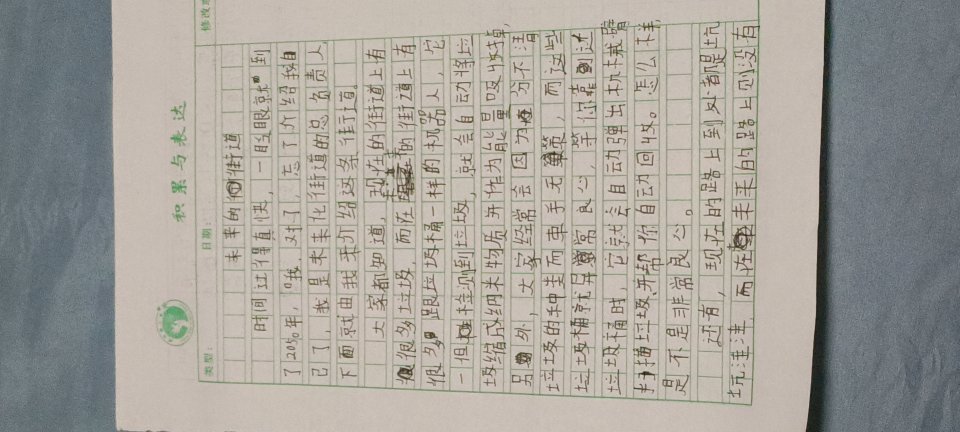 积累与表达
类型：
日期：
修改
未来的街道
时间过得真快，一眨眼就到
了2050年，哦，对了，忘了介绍我自
己了，我是未来化街道的总负责人，
下面就由我来介绍这条街道。
大家都知道，现在的街道上有
很多垃圾，而在的街道上有
很多跟垃圾桶一样的机器人，它
一但检测到垃圾，就会自动将垃
圾缩成纳米物质并作为能量吸收掉，
另外，大家经常会因为分不清
垃圾的种生而束手无策，而这些
垃圾桶就异常良心，等你靠到这
垃圾桶时，它就会自动弹出机械臂
扫描垃圾并帮你自动回收。怎么样，
是不是非常良心。
还有，现在的路上到处都是坑
坑洼洼，而在未来的路上则没有